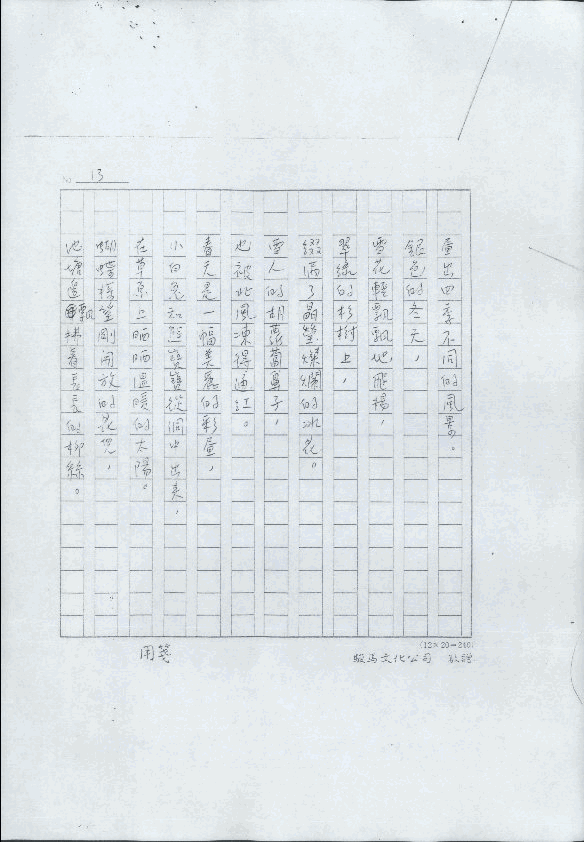 No. 13
畫出四季不同的風景。
銀色的冬天，
雪花輕飄飄地飛揚，
翠綠的杉樹上，
綴滿了晶瑩燦爛的冰花。
雪人的胡蘿蔔鼻子，
也被北風凍得通紅。
春天是一幅美麗的彩畫，
小白兔和熊寶寶從洞中出来，
在草原上晒晒温暖的太陽。
蝴蝶採望剛開放的花兒，
池塘邊飄拂着長長的柳絲。
(12×20=240)
駿馬文化公司 敬贈
用箋